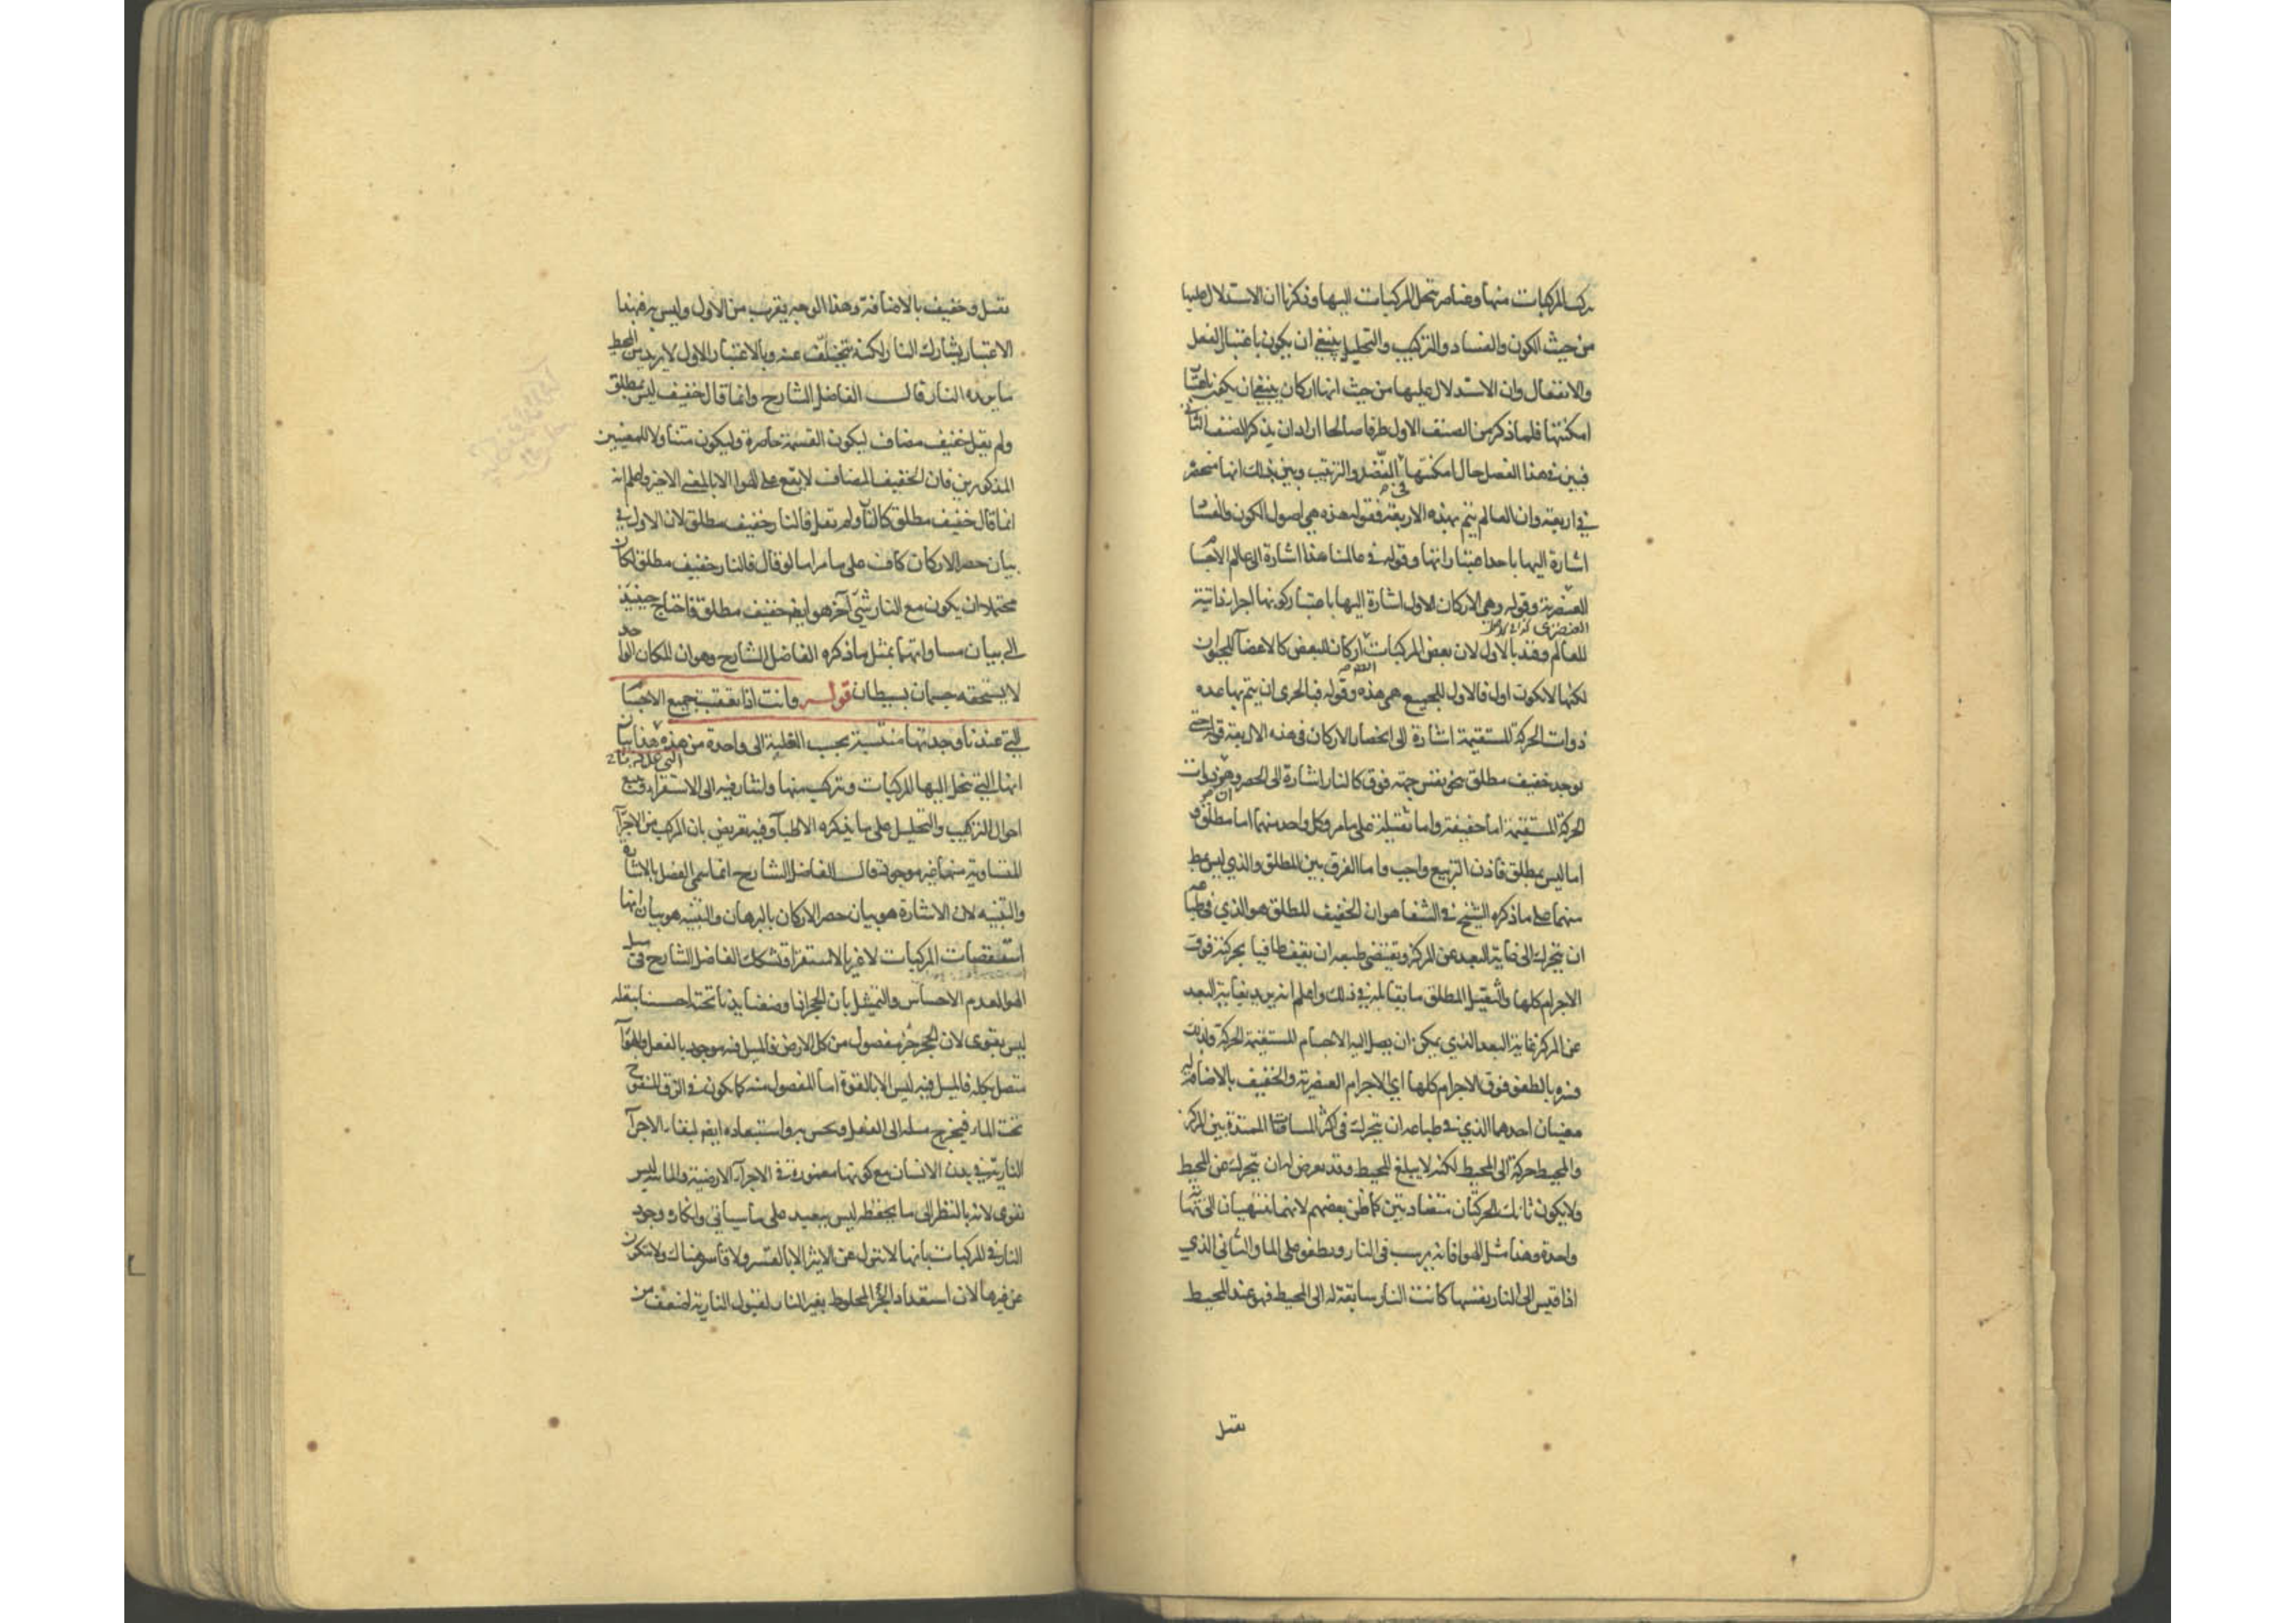 يركب المركبات منها وعناصر تنحل المركبات اليها وذكرنا ان الاستدلال عليها
من حيث الكون والفساد والتركيب والتحليل ينبغي ان يكون باعتبار الفعل
والانفعال وان الاستدلال عليها من حيث انها اركان ينبغي ان يكون باعتبار
امكنتها فلما ذكر من الصنف الاول طرفا صالحا اراد ان يذكر الصنف الثاني
فبين في هذا الفصل حال امكنتها في النضد والترتيب وبين بذلك انها منحصرة
في اربعة وان العالم يتم بهذه الاربعة فقوله هذه هي اصول الكون والفساد
اشارة اليها باحد اعتباراتها وقوله في عالمنا هذا اشارة الى عالم الاجسام
العنصرية وقوله وهي الاركان الاول اشارة اليها باعتبار كونها اجزاء ذاتية
العنصرى
للعالم وقيد بالاول لان بعض المركبات اركان للبعض كالاعضاء للحيوان
لكنها لا تكون اول فالاول للجميع هي هذه وقوله فبالحرى ان يتم بها عدة
ذوات الحركة المستقيمة اشارة الى انحصار الاركان في هذه الاربعة قوله حتى
يوجد خفيف مطلق ينحو نفس جهة فوق كالنار اشارة الى الحصر وهو ان ذوات
الحركة المستقيمة اما خفيفة واما ثقيلة على ما مر وكل واحد منهما اما مطلق و
اما ليس بمطلق فاذن التربيع واجب واما الفرق بين المطلق والذي ليس بمط
منهما على ما ذكره الشيخ في الشفا هو ان الخفيف المطلق هو الذي في طباعه
ان يتحرك الى غاية البعد عن المركز ويقتضي طبعه ان يقف طافيا بحركته فوق
الاجرام كلها والثقيل المطلق ما يقابله في ذلك واعلم انه يريد بغاية البعد
عن المركز غاية البعد الذي يمكن ان يصل اليه الاجسام المستقيمة الحركة ولذلك
فسره بالطفو فوق الاجرام كلها اي الاجرام العنصرية والخفيف بالاضافة له
معنيان احدهما الذي في طباعه ان يتحرك في اكثر المسافات الممتدة بين المركز
والمحيط حركة الى المحيط لكنه لا يبلغ المحيط وقد يعرض له ان يتحرك عن المحيط
ولا يكون تانك الحركتان متضادتين كما ظن بعضهم لانهما تنتهيان الى نهاية
واحدة وهذا مثل الهوا فانه يرسب في النار ويطفو على الما والثاني الذي
اذا قيس الى النار نفسها كانت النار سابقة له الى المحيط فهو عند المحيط
ثقيل
ثقيل وخفيف بالاضافة وهذا الوجه يقرب من الاول وليس به فبهذا
الاعتبار يشارك النار لكنه يتخلف عنه وبالاعتبار الاول لا يريد من المحيط
ما يريده النار قال الفاضل الشارح وانما قال خفيف ليس بمطلق
ولم يقل خفيف مضاف ليكون القسمة حاصرة وليكون متناولا للمعنيين
المذكورين فان الخفيف المضاف لا يقع على الهوا الا بالمعنى الاخير واعلم انه
انما قال خفيف مطلق كالنار ولم يقل فالنار خفيف مطلق لان الاول في
بيان حصر الاركان كاف على ما مر اما لو قال فالنار خفيف مطلق لكان
محتملا ان يكون مع النار شيء آخر هو ايضا خفيف مطلق فاحتاج حينئذ
الى بيان مساواتهما بمثل ما ذكره الفاضل الشارح وهو ان المكان الواحد
لا يستحقه جسمان بسيطان قوله وانت اذا تعقبت جميع الاجسام
التي عندنا وجدتها منتسبة بحسب الغلبة الى واحدة من هذه هذا بيان
انها التي تنحل اليها المركبات وتتركب منها واشار فيه الى الاستقراء وتتبع
احوال التركيب والتحليل على ما يذكره الاطباء وفيه تعريض بان المركب من الاجزاء
المتساوية منها غير موجود قال الفاضل الشارح انما سمى الفصل بالاشارة
والتنبيه لان الاشارة هو بيان حصر الاركان بالبرهان والتنبيه هو بيان انها
اسطقصات المركبات لا غير بالاستقراء وتشكك الفاضل الشارح في ميل
الهوا لعدم الاحساس والتمثيل بان الحجر اذا وضعنا يدنا تحته احسسنا بثقله
ليس بقوى لان الحجر جزء مفصول من كل الارض فالميل فيه موجود بالفعل والهواء
متصل بكله فالميل فيه ليس الا بالقوة اما المفصول منه كما يكون في الزق المنفوخ
تحت الماء فيخرج ميله الى الفعل ويحس به واستبعاده ايضا لبقاء الاجزاء
النارية في بدن الانسان مع كونها مغمورة في الاجزاء الارضية والمائية ليس
بقوى لانه بالنظر الى ما يحفظه ليس ببعيد على ما سيأتي وانكاره وجود
النار في المركبات بانها لا تنزل عن الاثير الا بالقسر ولا قاسر هناك ولا تتكون
عن غيرها لان استعداد الجزء المخلوط بغير النار لقبول النارية اضعف من